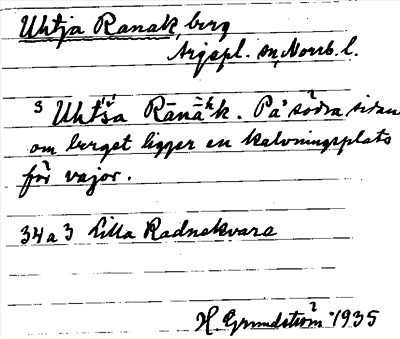 Uhtja Ranak, berg
Arjepl. sn, Norrb. l.
3 Uhtsa Rānāᵏk. På södra sidan
om berget ligger en kalvningsplats
för vajor.
34a3 Lilla Radnekvare
H. Grundström 1935